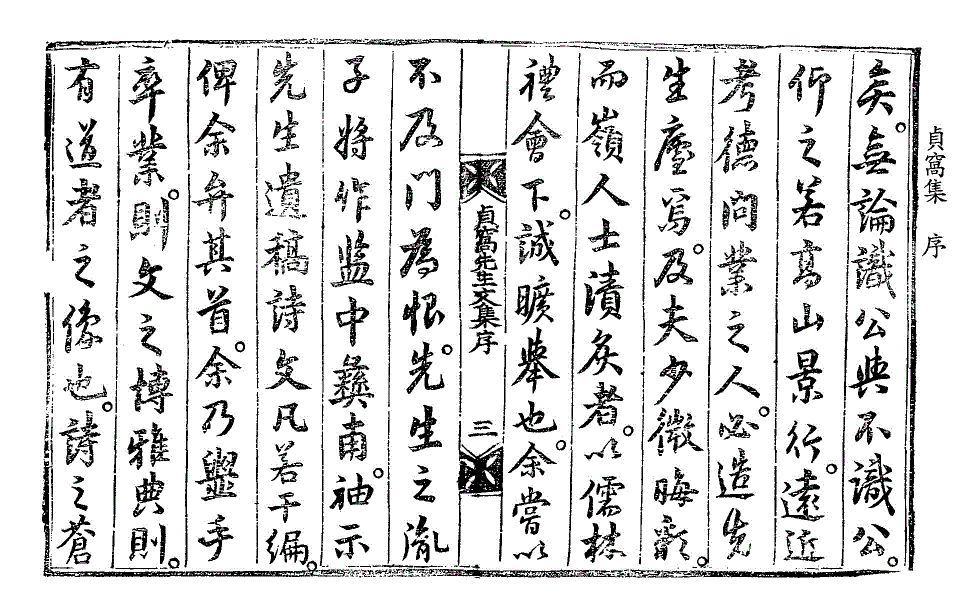 貞窩集 序
矣。無論識公與不識公。
仰之若高山景行。遠近
考德問業之人。必造先
生廬焉。及夫少微晦彩。
而嶺人士漬炙者。以儒林
禮會下。誠曠擧也。余嘗以
貞窩先生文集序 三
不及門爲恨。先生之胤
子將作監中彝甫。袖示
先生遺稿詩文凡若干編。
俾余弁其首。余乃盥手
卒業。則文之博雅典則。
有道者之像也。詩之蒼